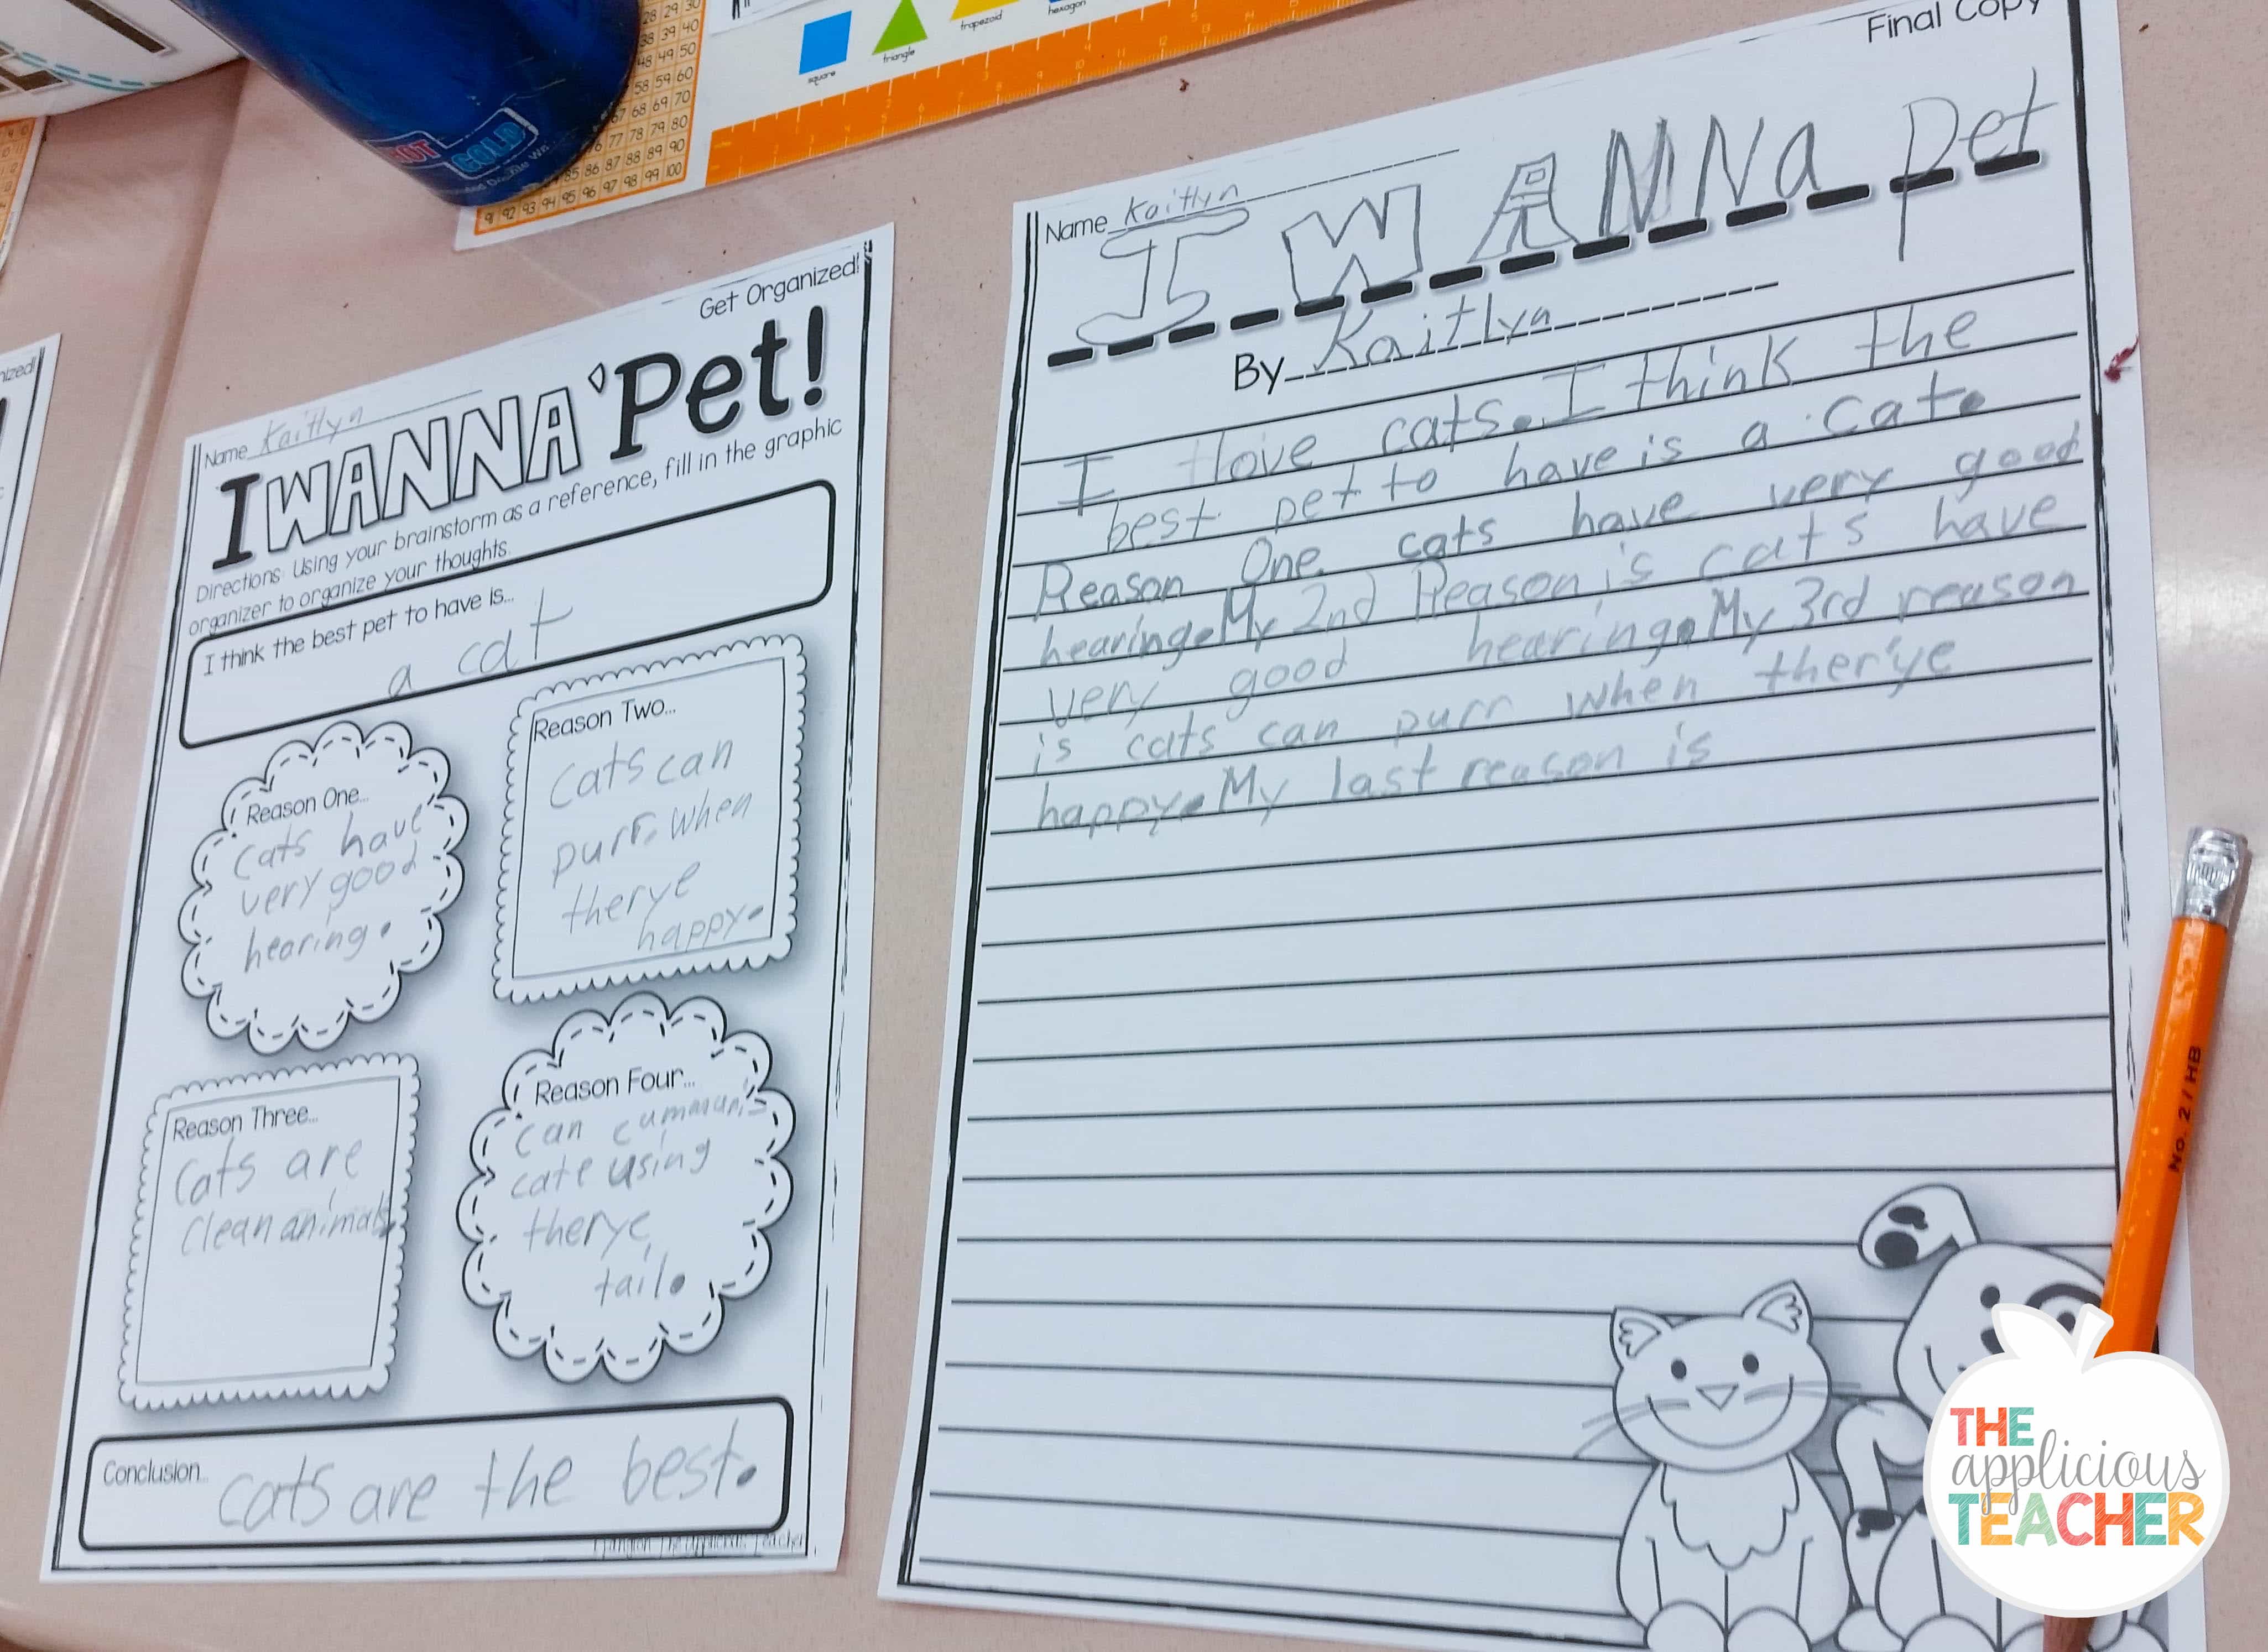 HOT
COLD
square
triangle
trapezoid
hexagon
28 29 30
38 39 40
48 49 50
58 59 60
67 68 69 70
77 78 79 80
86 87 88 89 90
91 92 93 94 95 96 97 98 99 100
Get Organized!
Name Kaitlyn
I WANNA Pet!
Directions: Using your brainstorm as a reference, fill in the graphic
organizer to organize your thoughts.
I think the best pet to have is...
a cat
Reason One...
cats have
very good
hearing.
Reason Two...
Cats can
purr. when
therye
happy.
Reason Three...
Cats are
clean animals
Reason Four...
can cummuni
cate using
therye
tail.
Conclusion...
cats are the best.
Final Copy
Name Kaitlyn
I WANNa pet
By Kaitlyn
I love cats. I think the
best pet to have is a cat.
Reason One cats have very good
hearing. My 2nd Reason is cats have
very good hearing. My 3rd reason
is cats can purr when ther'ye
happy. My last reason is
No. 2 / HB
THE
applicious
TEACHER